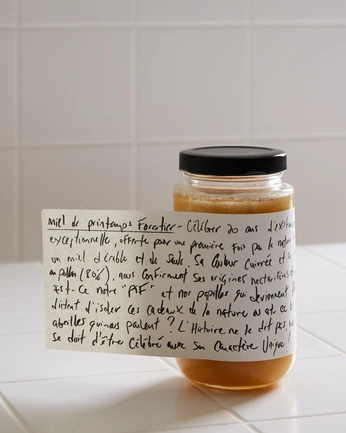 Miel de printemps Forestier - Célébrer 20 ans d'exist
exceptionnelle, offerte pour une première fois par la nature
un miel d'érable et de saule. Sa couleur cuivrée et
en pollen (80%), nous confirment ses origines nectarifères
Est-ce notre "PIF" et nos papilles qui deviennent
d'isoler ces cadeaux de la nature ou
abeilles qui nous parlent ? L'Histoire ne le dit pas,
se doit d'être célébré avec son caractère Unique !